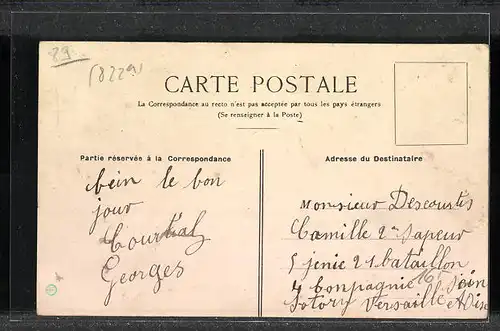 29
(8229)
CARTE POSTALE
La Correspondance au recto n'est pas acceptée par tous les pays étrangers
(Se renseigner à la Poste)
Partie réservée à la Correspondance
bein le bon
jour
Courtial
Georges
Adresse du Destinataire
Monsieur Descourtis
Camille 2me Sapeur
5 jenie 21 bataillon
4 Compagnie 16
Sotory Versaille